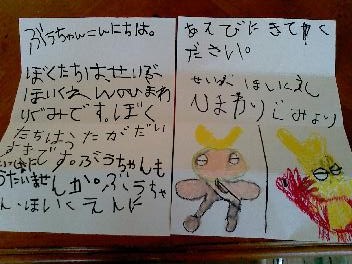 ぶうちゃんこんにちは。
ぼくたちは、せいぶ
ほいくえんのひまわ
りぐみです。ぼく
たちはうたがだい
すきです。ぶうちゃんも
いっしょに
うたいませんか。ぶうちゃ
ん・ほいくえんに
あそびにきてく
ださい。
せいぶほいくえん
ひまわりぐみより